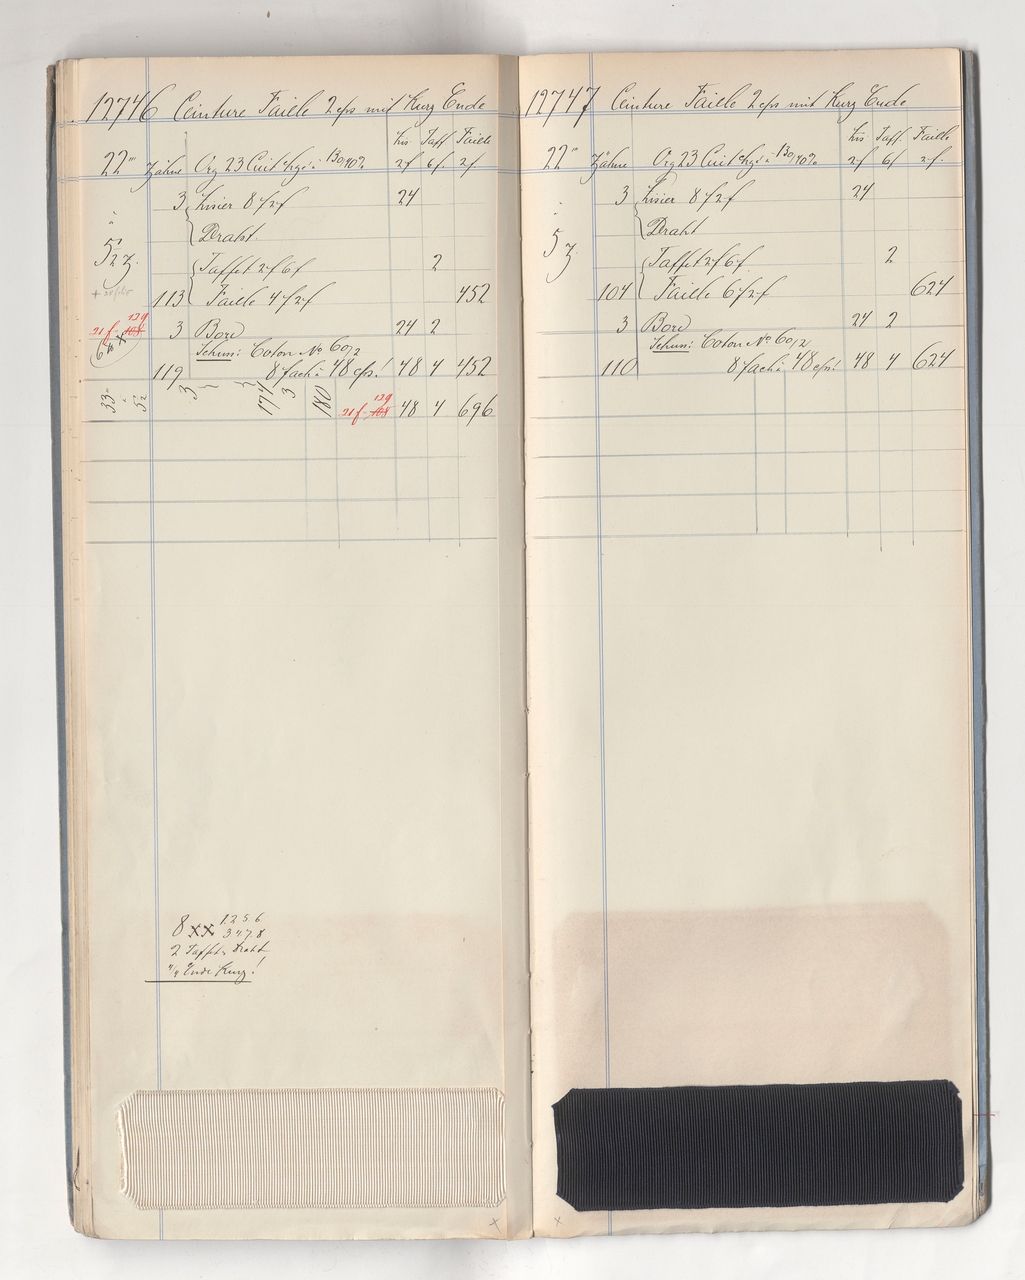 12746 Ceinture Faille 2 eps mit Kurz Ende
Lis Taff Faille
22''' Zähne Org 23 Cuit 130/40% 2f 6f 2f
3 Lisier 8f2f 24
à Draht
5 1/2 Z. Taffet 2f6f 2
113 Faille 4f2f 452
129
21f 108
3 Bord 24 2
6 x x
Schuss: Coton No 60/2
119 8fach à 48 eps! 48 4 452
33- à 5 1/2 3 174 3 180
129
21f 108 48 4 696
8 xx 1 2 5 6
3 4 7 8
2 Taffet Draht
Ende Kurz!
x
12747 Ceinture Faille 2 eps mit Kurz Ende
Lis Taff. Faille
22''' Zähne Org 23 Cuit 130/40% 2f 6f 2f.
3 Lisier 8f2f 24
à Draht
5 Z Taffet 2f6f 2
104 Faille 6f2f 624
3 Bord 24 2
Schuss: Coton No 60/2
110 8fach à 48 eps! 48 4 624
x